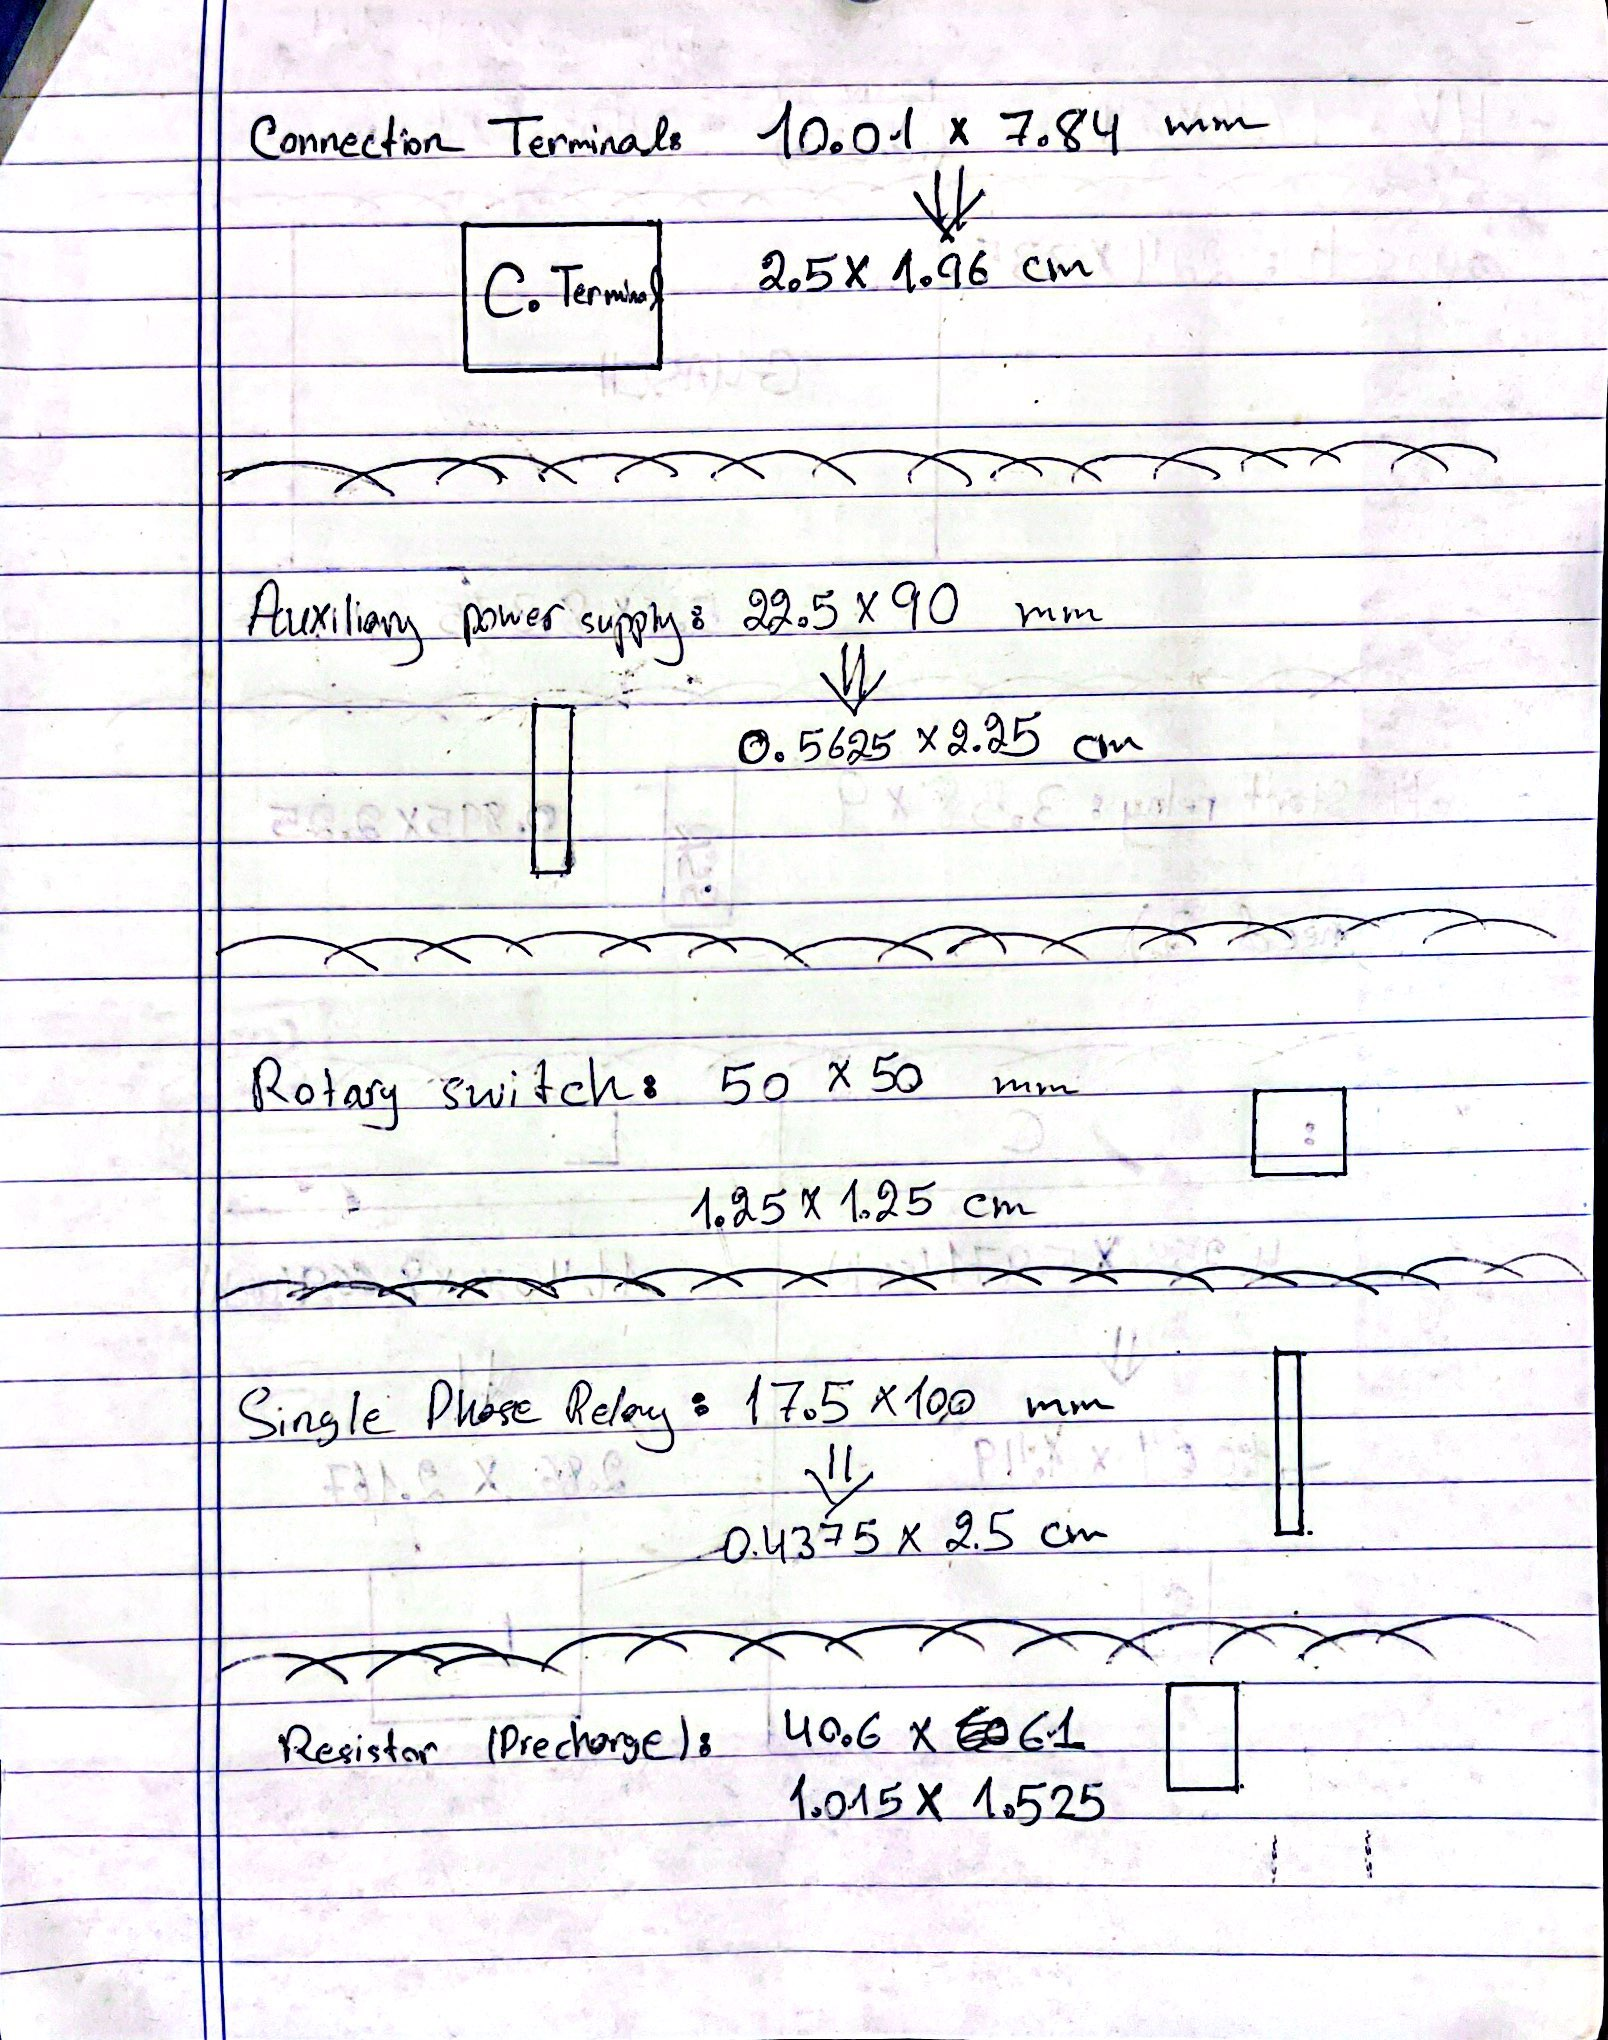 Connection Terminal: 10.01 x 7.84 mm
2.5 x 1.96 cm
C. Terminal
Auxiliary power supply: 22.5 x 90 mm
0.5625 x 2.25 cm
Rotary switch: 50 x 50 mm
1.25 x 1.25 cm
Single Phase Relay: 17.5 x 100 mm
0.4375 x 2.5 cm
Resistor (Precharge): 40.6 x 61
1.015 x 1.525